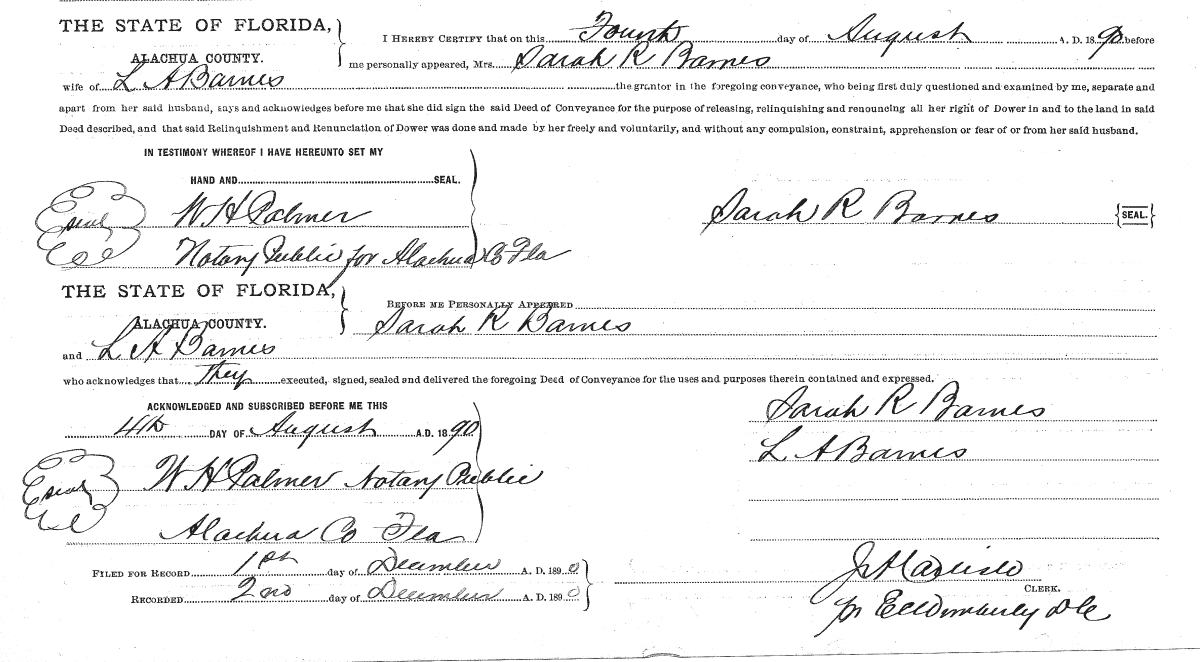 THE STATE OF FLORIDA,
ALACHUA COUNTY.
I HEREBY CERTIFY that on this Fourth day of August A. D. 1890 before
me personally appeared, Mrs. Sarah R Barnes
wife of L A Barnes the grantor in the foregoing conveyance, who being first duly questioned and examined by me, separate and
apart from her said husband, says and acknowledges before me that she did sign the said Deed of Conveyance for the purpose of releasing, relinquishing and renouncing all her right of Dower in and to the land in said
Deed described, and that said Relinquishment and Renunciation of Dower was done and made by her freely and voluntarily, and without any compulsion, constraint, apprehension or fear of or from her said husband.
IN TESTIMONY WHEREOF I HAVE HEREUNTO SET MY
HAND AND SEAL.
seal W H Palmer
Sarah R Barnes {SEAL.}
Notary Public for Alachua Co Fla
THE STATE OF FLORIDA,
ALACHUA COUNTY.
BEFORE ME PERSONALLY APPEARED
Sarah R Barnes
and L A Barnes
who acknowledges that they executed, signed, sealed and delivered the foregoing Deed of Conveyance for the uses and purposes therein contained and expressed.
ACKNOWLEDGED AND SUBSCRIBED BEFORE ME THIS
4th DAY OF August A.D. 1890
Sarah R Barnes
L A Barnes
seal W H Palmer Notary Public
Alachua Co Fla
FILED FOR RECORD 1st day of December A. D. 1890
RECORDED 2nd day of December A. D. 1890
CLERK.
pr E C Wimberly D C